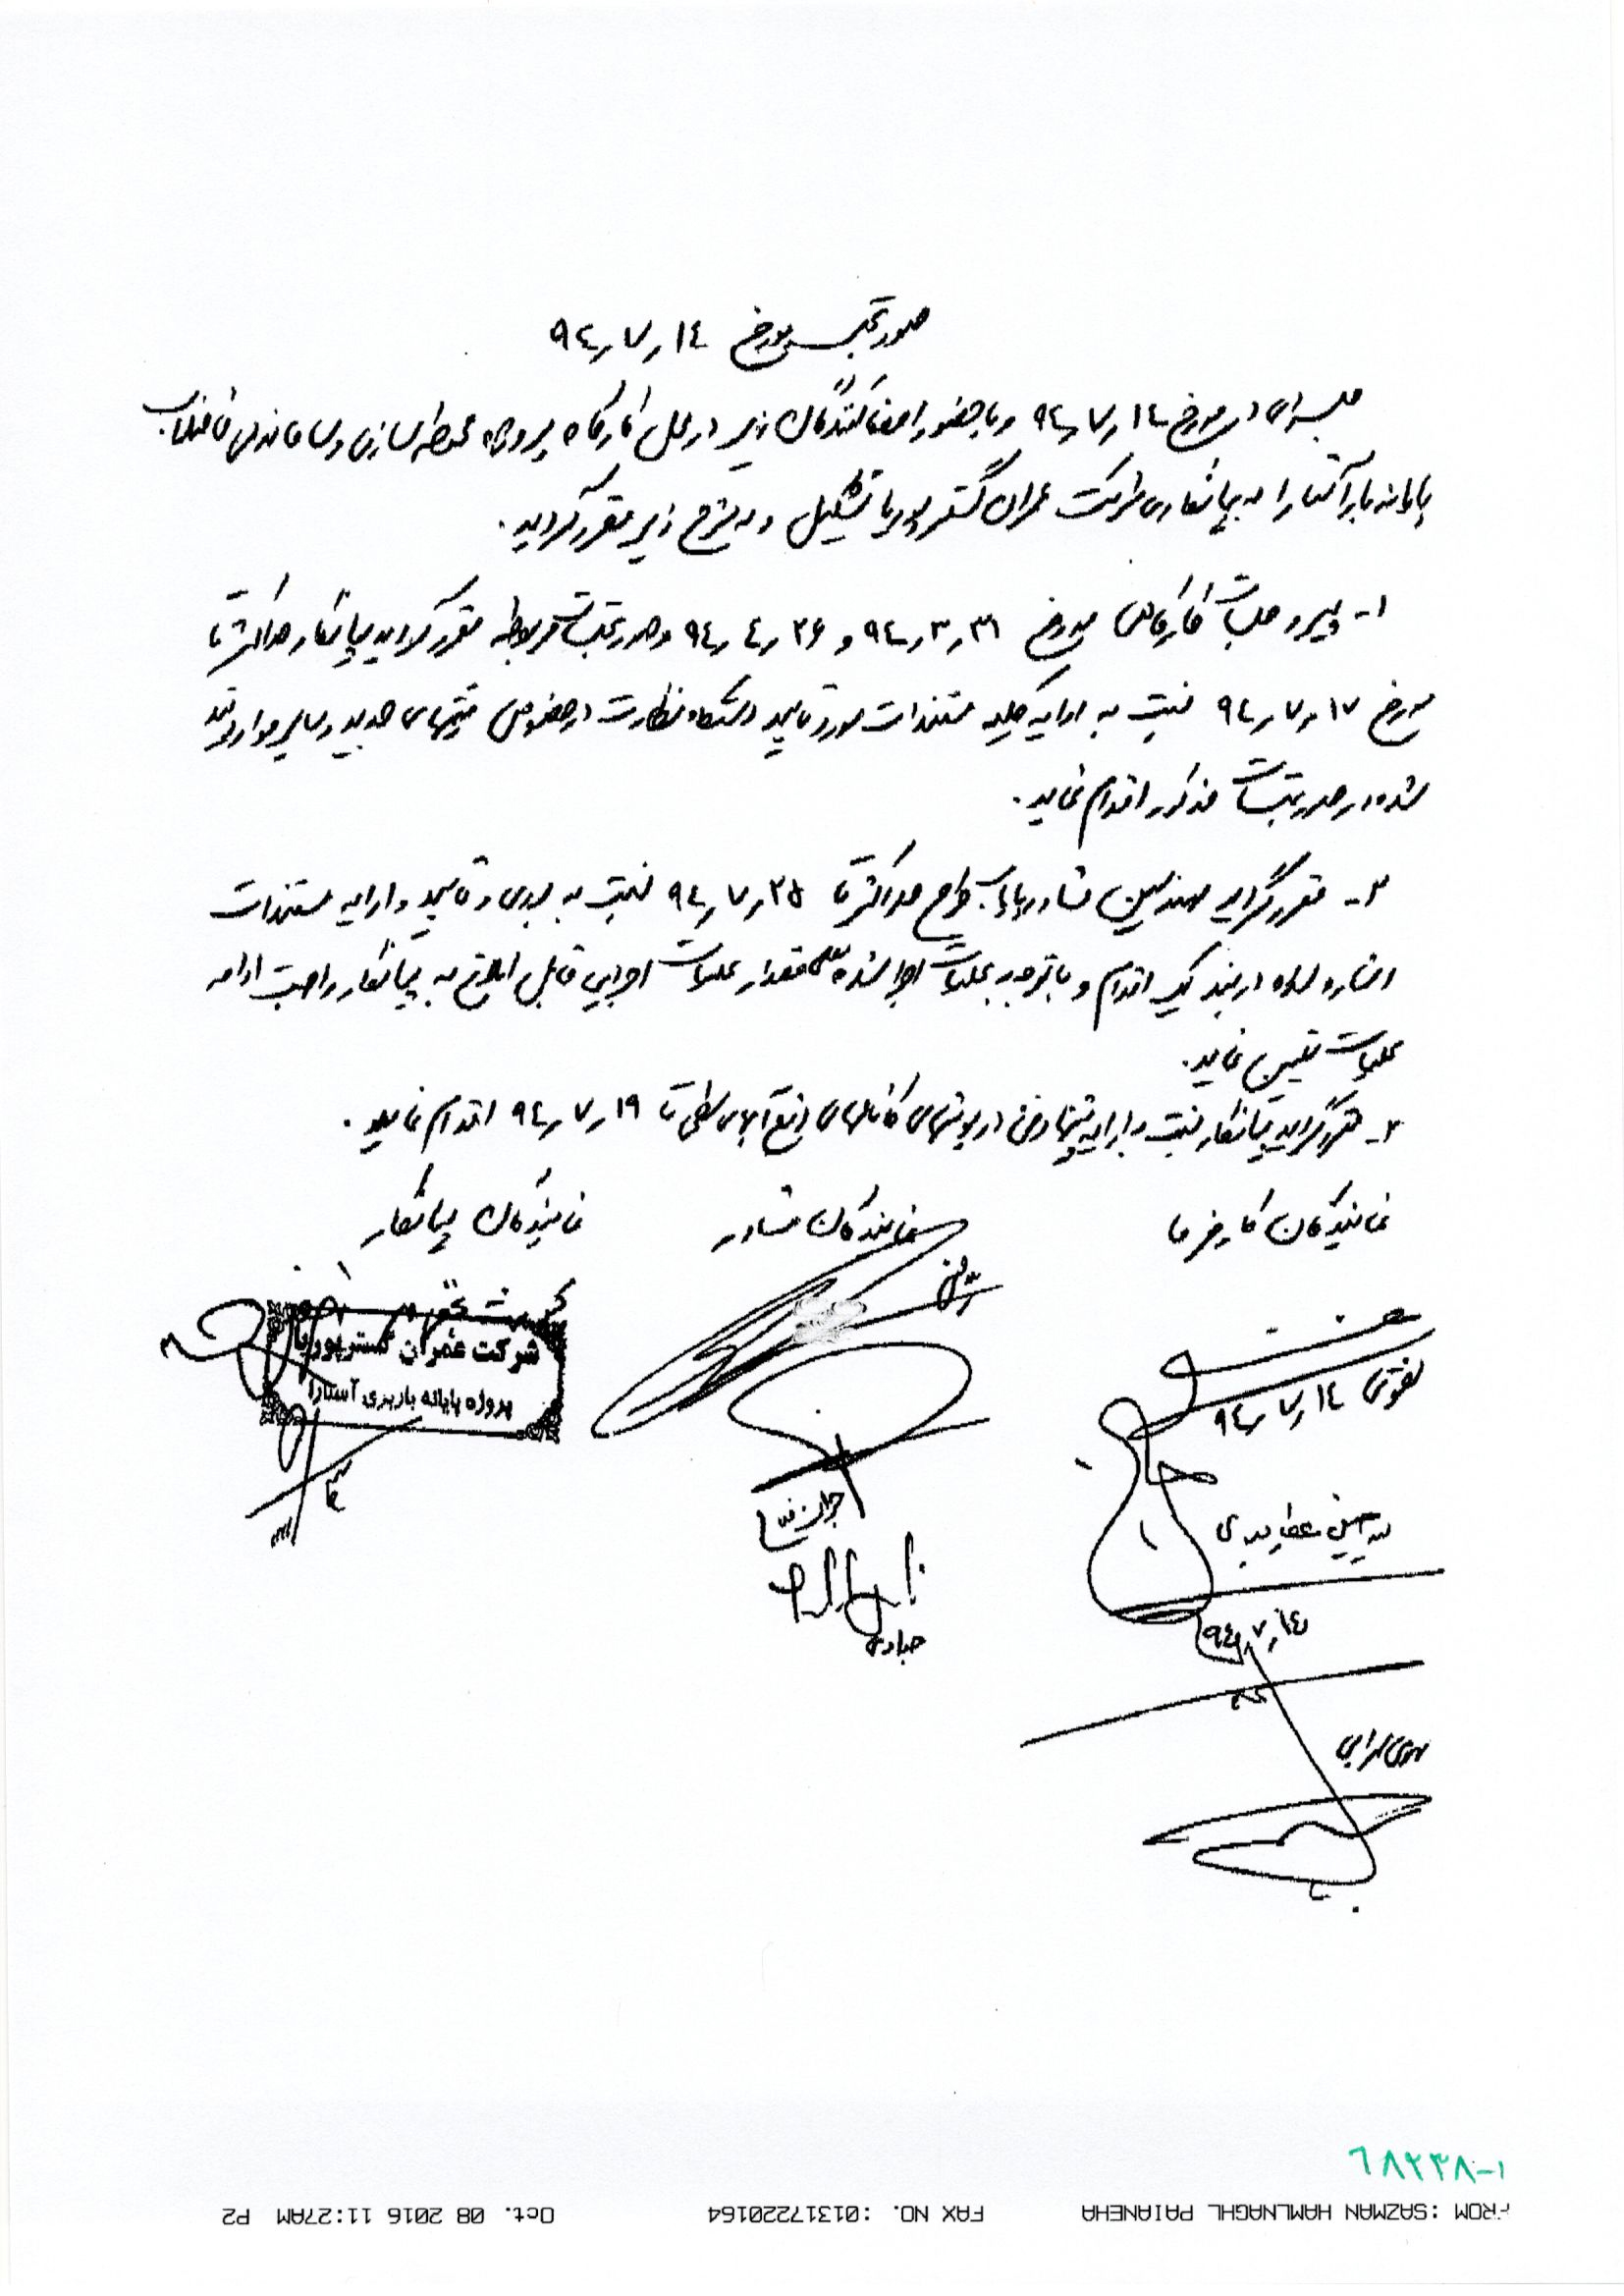 صورتجلسه مورخ ۹۴٫۷٫۱٤
جلسه‌ای در مورخ ۹۴٫۷٫۱۴ و با حضور امضا کنندگان زیر در محل کارگاه پروژه محوطه سازی و ساماندهی فاضلاب
پایانه بار آستارا به پیمانکاری شرکت عمران گستر پوریا تشکیل و به شرح زیر مقرر گردید.
۱- پیرو جلسات کارگاهی مورخ ۹۴٫۳٫۳۱ و ۹۴٫٤٫۲۶ و صورتجلسات مربوطه مقرر گردید پیمانکار حداکثر تا
مورخ ۹۴٫۷٫۱۷ نسبت به ارایه کلیه مستندات مورد تایید دستگاه نظارت در خصوص قیمتهای جدید و سایر موارد قید
شده در صورتجلسات مذکور اقدام نماید.
۲- مقرر گردید مهندسین مشاور پایاب طرح حداکثر تا ۹۴٫۷٫۲۵ نسبت به بررسی و تایید و ارایه مستندات
اشاره شده در بند یک اقدام و با توجه به عملیات اجرا شده مقدار عملیات اجرایی قابل ابلاغ به پیمانکار را جهت ادامه
عملیات تعیین نماید.
۳- مقرر گردید پیمانکار نسبت به ارایه پیشنهاد فنی درپوشهای کانالهای دفع آبهای سطحی تا ۹۴٫۷٫۱۹ اقدام نماید.
نمایندگان کارفرما
نمایندگان مشاور
نمایندگان پیمانکار
شرکت عمران گستر پوریا
پروژه پایانه باربری آستارا
تقوی ۹۴٫۷٫۱٤
جوان نیا
عبادی
۹٤٫۷٫۱٤
۶۸۲۳۸-۱
FROM : SAZMAN HAMLNAGHL PAIANEHA FAX NO. :01317220164 Oct. 08 2016 11:27AM P2